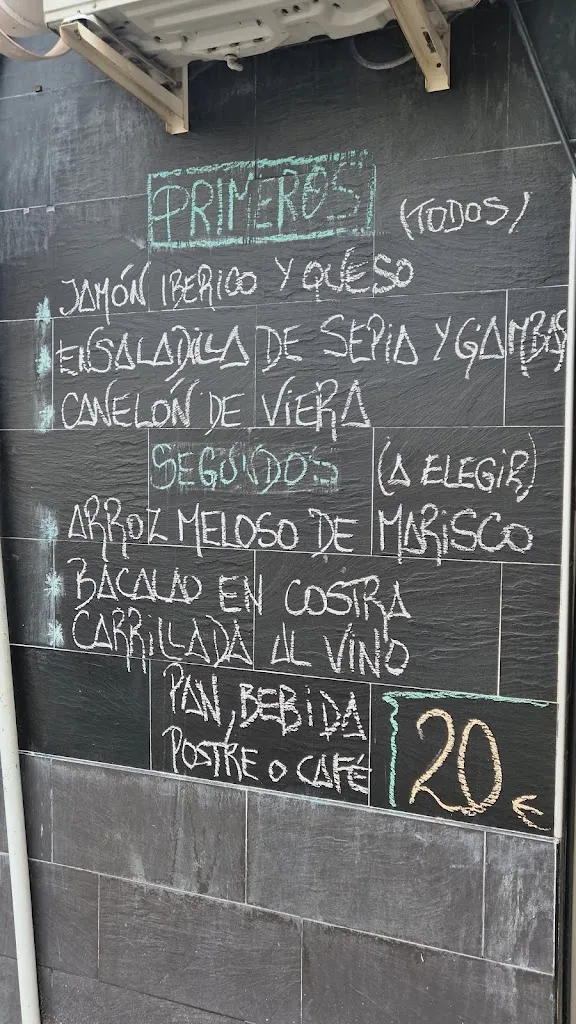 PRIMEROS (TODOS)
JAMÓN IBERICO Y QUESO
* ENSALADILLA DE SEPIA Y GAMBAS
* CANELÓN DE VIERA
SEGUNDOS (A ELEGIR)
* ARROZ MELOSO DE MARISCO
* BACALAO EN COSTRA
* CARRILLADA AL VINO
PAN, BEBIDA
POSTRE O CAFÉ
20 €